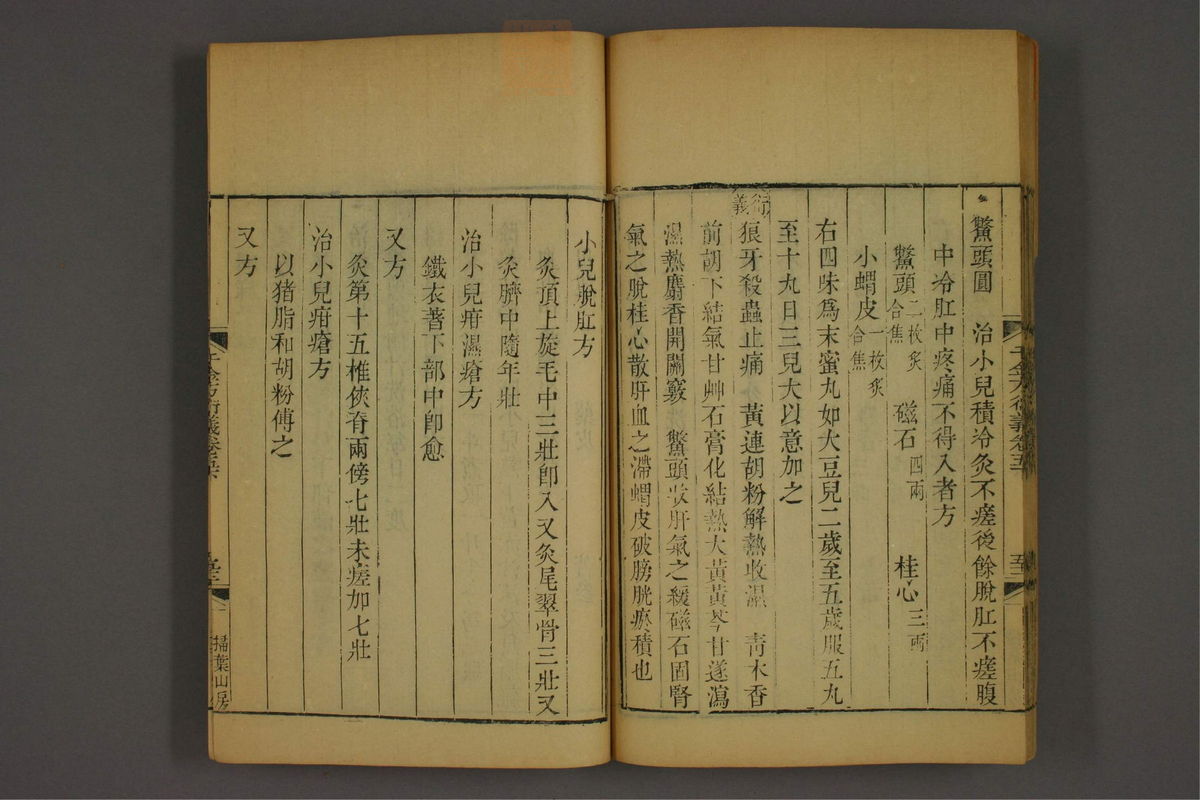 鱉頭圓　治小兒積冷灸不瘥後餘脫肛不瘥腹
中冷肛中疼痛不得入者方
鱉頭二枚炙合焦　磁石四兩　桂心三兩
小蝟皮一枚炙合焦
右四味爲末蜜丸如大豆兒二歲至五歲服五丸
至十丸日三兒大以意加之
衍義
狼牙殺蟲止痛　黃連胡粉解熱收濕　靑木香
前胡下結氣甘艸石膏化結熱大黃黃芩甘遂瀉
濕熱麝香開關竅　鱉頭收肝氣之緩磁石固腎
氣之脫桂心散肝血之滯蝟皮破膀胱瘀積也
千金方衍義卷五
小兒脫肛方
灸頂上旋毛中三壯卽入又灸尾翠骨三壯又
灸臍中隨年壯
治小兒疳濕瘡方
鐵衣著下部中卽愈
又方
灸第十五椎俠脊兩傍七壯未瘥加七壯
治小兒疳瘡方
以猪脂和胡粉傅之
又方
千金方衍義卷
掃葉山房